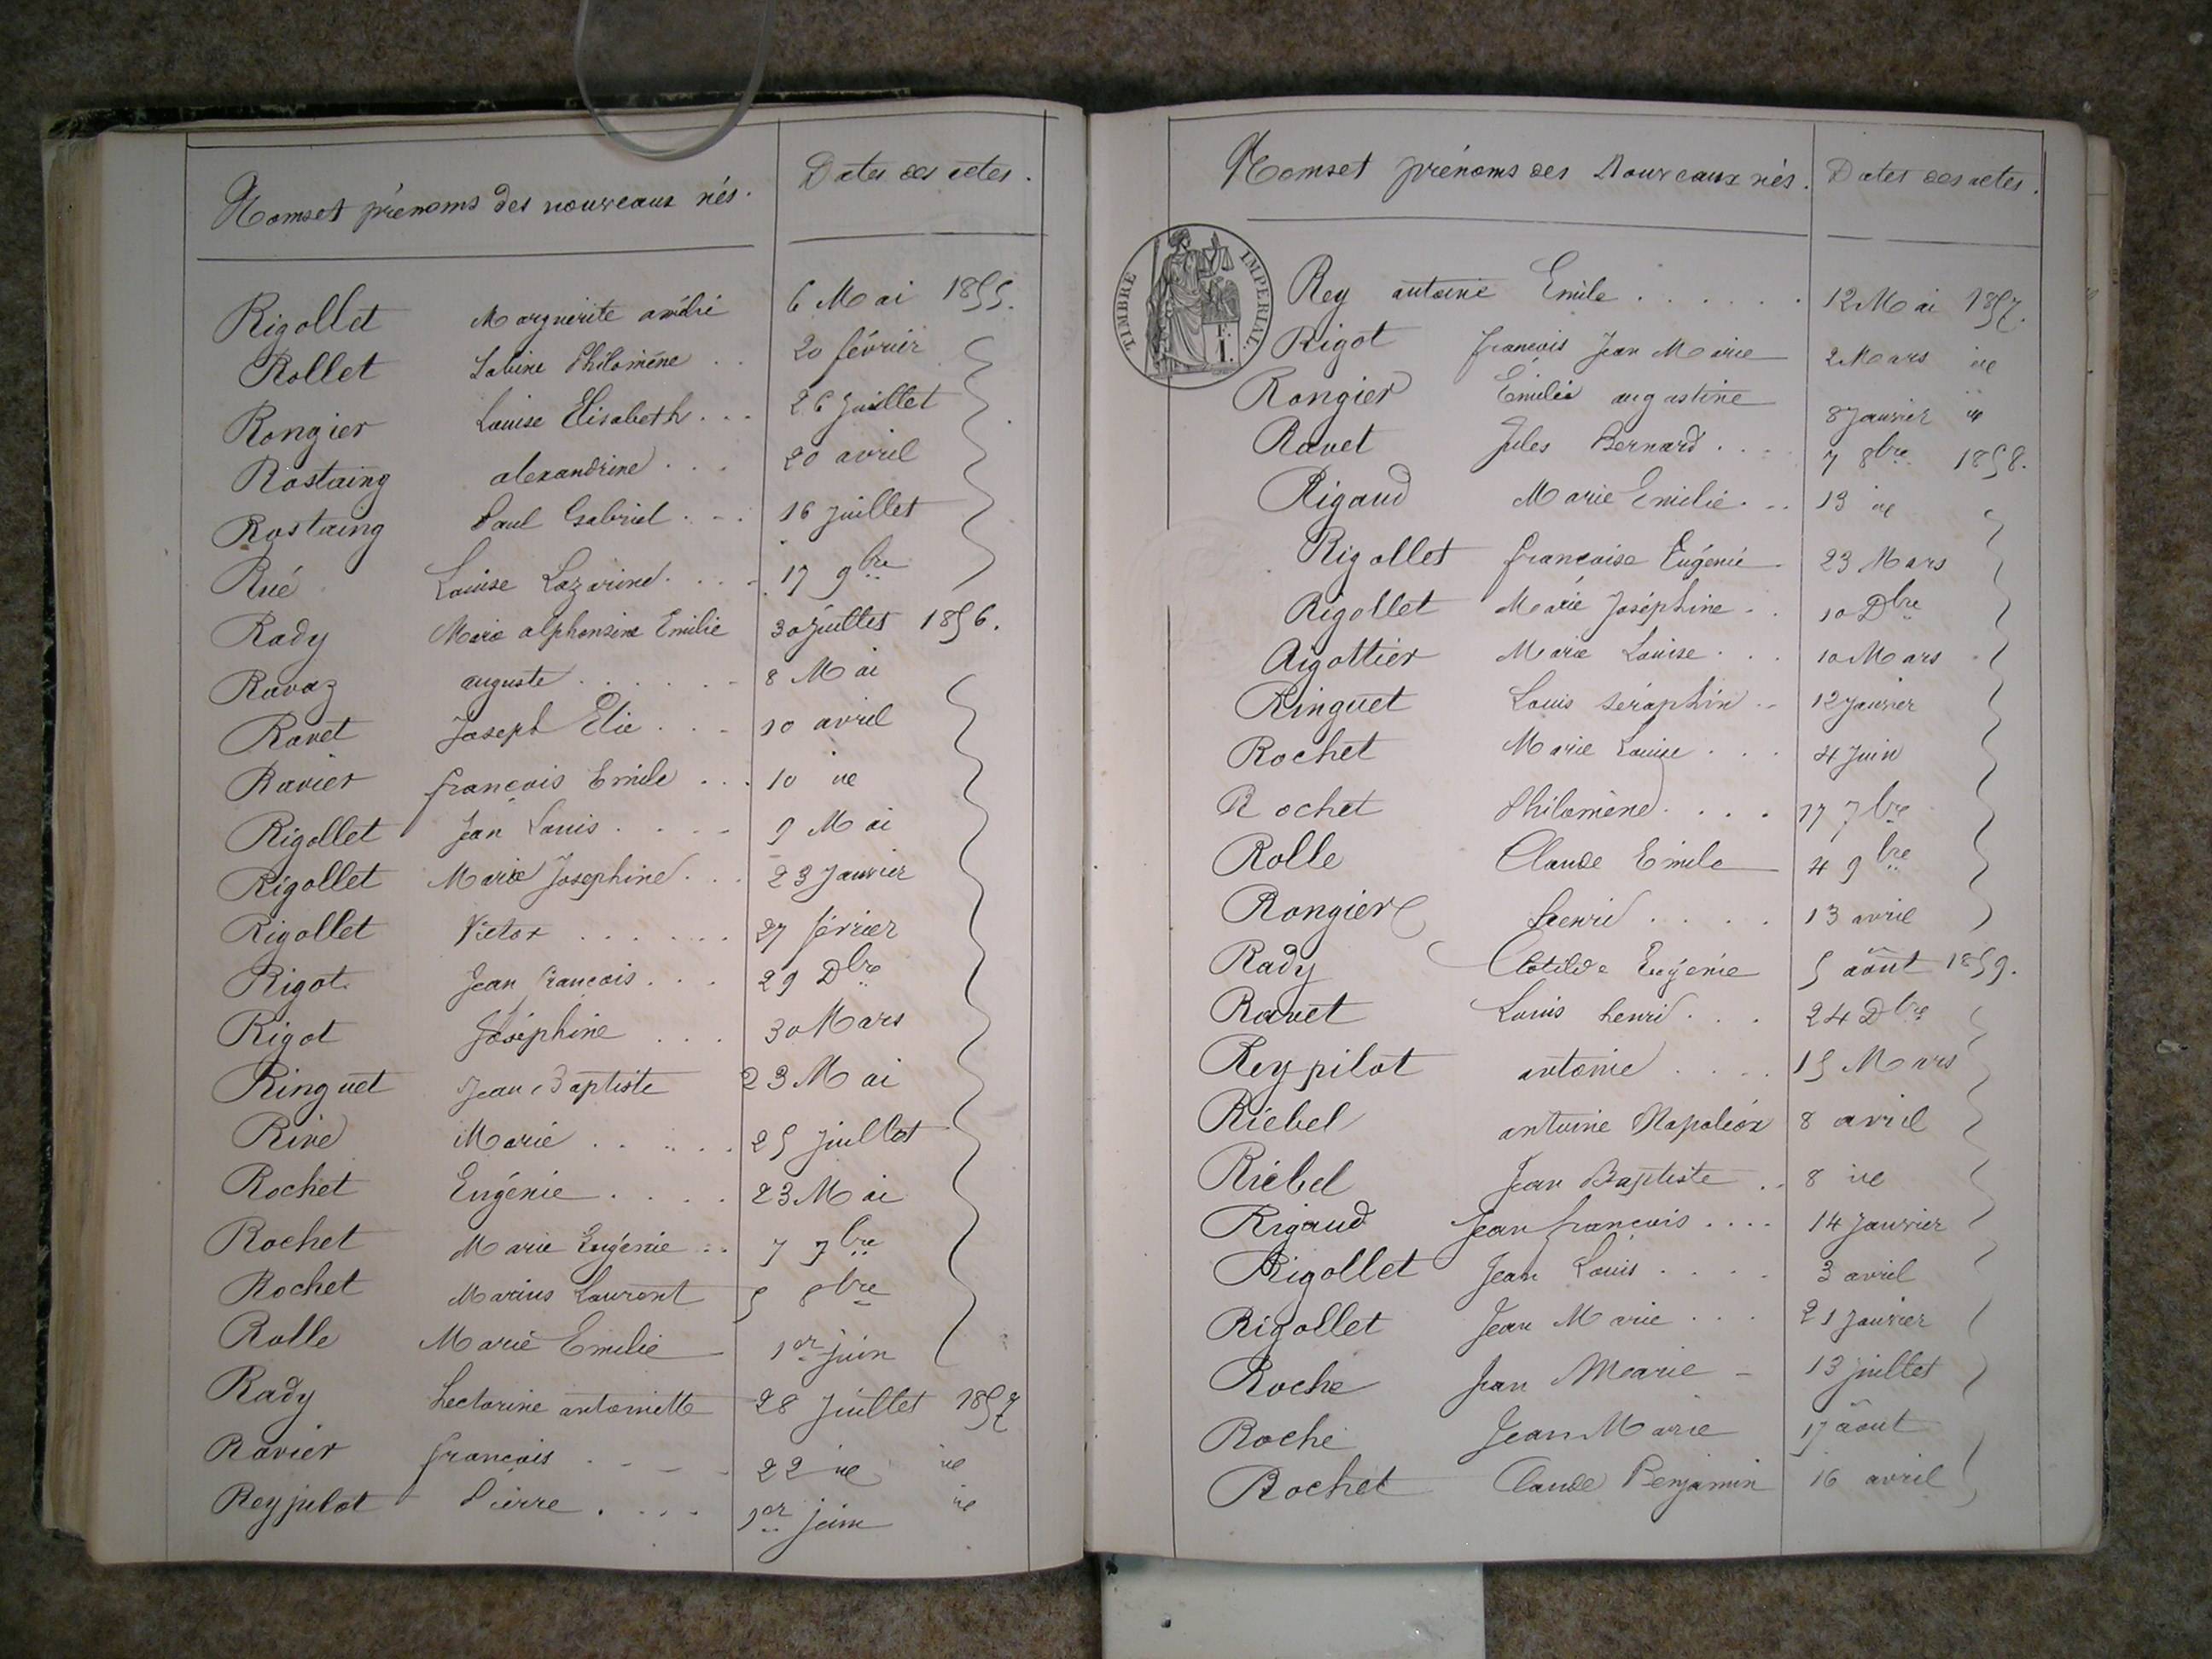 Noms et prénoms des nouveaux nés. Dates des actes.
Rigollet Marguerite 6 Mai 1855.
Rollet Sabine Philomène . . 20 février
Rongier Louise Elisabeth . . . 26 Juillet
Rostaing alexandrine . . . 20 avril
Rostaing Paul Gabriel . . . 16 juillet
Rué Louise Lazarine . . . 17 9bre
Rady Marie alphonsine Emilie 30 juillet 1856.
Ravaz auguste . . . . . . 8 Mai
Ravet Joseph Elie . . . 10 avril
Ravier françois Emile . . . 10 ue
Rigollet Jean Louis . . . . 9 Mai
Rigollet Marie Josephine . . . 23 Janvier
Rigollet Victor . . . . . . 27 février
Rigot Jean françois . . . 29 Dbre
Rigot Joséphine . . . 30 Mars
Ringuet Jean Baptiste 23 Mai
Rive Marie . . . . . 25 juillet
Rochet Eugénie . . . . 23 Mai
Rochet Marie Eugénie . . 7 7bre
Rochet Marius Laurent 5 8bre
Rolle Marie Emilie 1er juin
Rady antoinette 28 Juillet 1857
Ravier françois . . . . 22 ue ue
Rey pilot Pierre . . . . 1er juin ue
Noms et prénoms des Nouveaux nés. Dates des actes.
TIMBRE IMPERIAL.
F.
1.
Rey antoine Emile . . . . . . 12 Mai 1857.
Rigot françois Jean Marie 2 Mars ue
Rongier Emilie augustine 8 Janvier ue
Ravet Jules Bernard . . . 7 8bre 1858.
Rigaud Marie Emilie . . . 13 ue
Rigollet françoise Eugénie 23 Mars
Rigollet Marie Joséphine . . 10 Dbre
Rigottier Marie Louise . . . 10 Mars
Ringuet Louis Séraphin . . 12 Janvier
Rochet Marie Louise . . . 4 Juin
Rochet Philomène . . . . 17 7bre
Rolle Claude Emile 4 9bre
Rongier henri . . . . 13 avril
Rady Clotilde Eugénie 5 août 1859.
Ravet Louis henri . . . 24 Dbre
Rey pilot antoine . . . . 15 Mars
Riebel antoine Napoléon 8 avril
Riebel Jean Baptiste . . 8 ue
Rigaud Jean françois . . . . 14 Janvier
Rigollet Jean Louis . . . . 3 avril
Rigollet Jean Marie . . . 21 Janvier
Roche Jean Marie 13 juillet
Roche Jean Marie 17 août
Rochet Claude Benjamin 16 avril